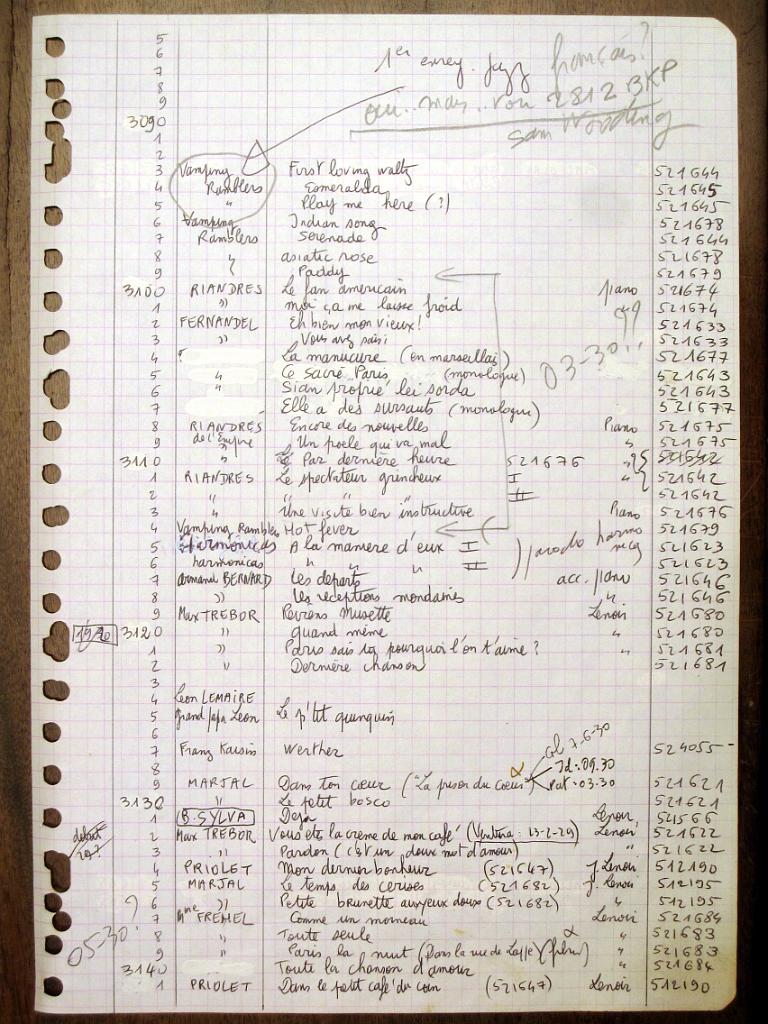 5
6
7 1er enreg. Jazz français?
8
9 ou.. mais.. voir 2812 BKP
3090 Sam Wooding
1
2
3 Vamping First loving waltz 521644
4 Ramblers Esmeralda 521645
5 " Play me here (?) 521645
6 Vamping Indian song 521678
7 Ramblers Serenade 521644
8 " asiatic rose 521678
9 " Paddy 521679
3100 RIANDRES Le fan americain piano 521674
1 " moi ça me laisse froid " 521674
2 FERNANDEL Eh bien mon vieux! 521633
3 " Vous avez saisi 521633
4 ? La manucure (en marseillais) 03-30?? 521677
5 " Ce sacré Paris (monologue) 521643
6 " Sian proprié lei sorda 521643
7 Elle a des sursauts (monologue) 521677
8 RIANDRES Encore des nouvelles Piano 521675
9 de l'Empire Un poele qui va mal " 521675
3110 " Par dernière heure 521676 " 521642
1 RIANDRES Le spectateur grincheux I " 521642
2 " " " II 521642
3 " Une visite bien instructive Piano 521676
4 Vamping Ramblers Hot fever 521679
5 harmonicas A la manière d'eux I parodie harmonicas 521623
6 harmonicas " " " II 521623
7 Armand BERNARD Les departs acc. piano 521646
8 " les réceptions mondaines " 521646
9 Max TREBOR Revions Musette Lenoir 521680
1930 3120 " quand même " 521680
1 " Paris sais tu pourquoi l'on t'aime? " 521681
2 " Dernière chanson 521681
3
4 Leon LEMAIRE
5 Grand papa Leon Le p'tit quinquin
6
7 Franz Kaisin Werther 524055-
8 gl 7-6-30
Id: 09.30
9 MARJAL Dans ton cœur ("La prison du cœur" α cat: 03-30 521621
3130 " Le petit bosco 521621
1 B. SYLVA Deja Lenoir 521566
début 29? 2 Max TREBOR Vous êtes la crème de mon café (Ventura: 13-2-29) Lenoir 521622
3 " Pardon (c'est un doux mot d'amour) " 521622
4 PRIOLET Mon dernier bonheur (521647) J. Lenoir 512190
5 MARJAL Le temps des cerises (521682) J. Lenoir 512195
6 " Petite brunette aux yeux doux (521682) " 512195
05-30? 7 Mme FREHEL Comme un moineau Lenoir 521684
8 " Toute seule α " 521683
9 " Paris la nuit (Dans la rue de Lappe) (film) " 521683
3140 Toute la chanson d'amour " 521684
1 PRIOLET Dans le petit café du coin (521647) Lenoir 512190